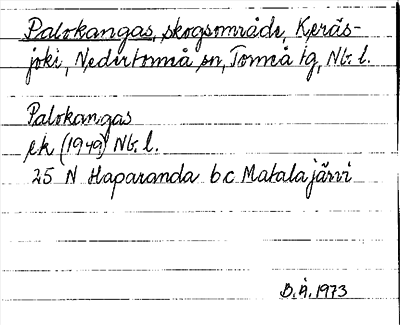 Palokangas, skogsområde, Keräs-
joki, Nedertorneå sn, Torneå tg, Nb. l.
Palokangas
ek (1949) Nb. l.
25 N Haparanda bc Matalajärvi
B.Å. 1973